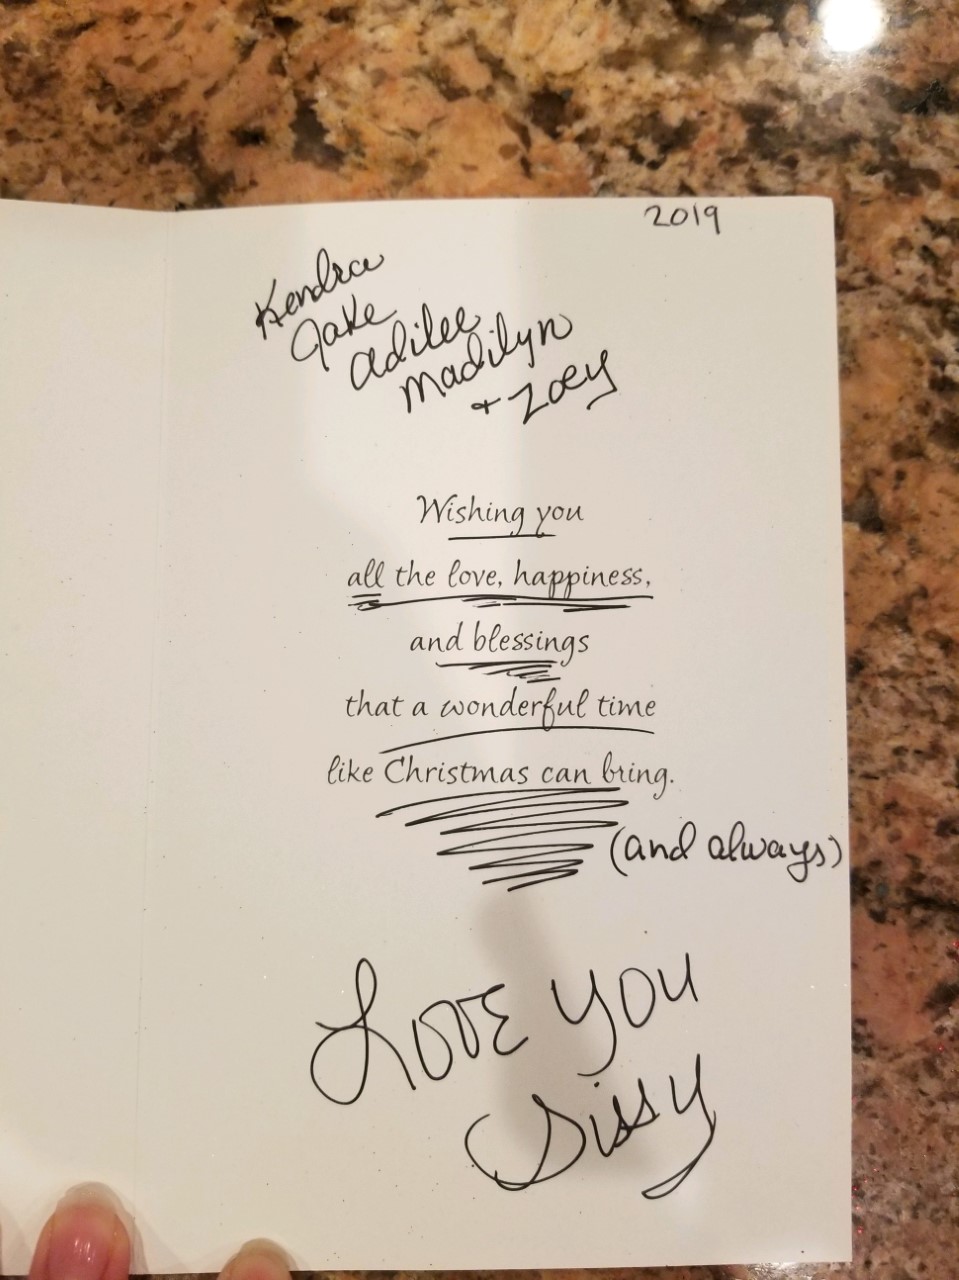 2019
Kendra
Jake
Adilee
Madilyn
+ Zoey
Wishing you
all the love, happiness,
and blessings
that a wonderful time
like Christmas can bring.
(and always)
Love you
Sissy